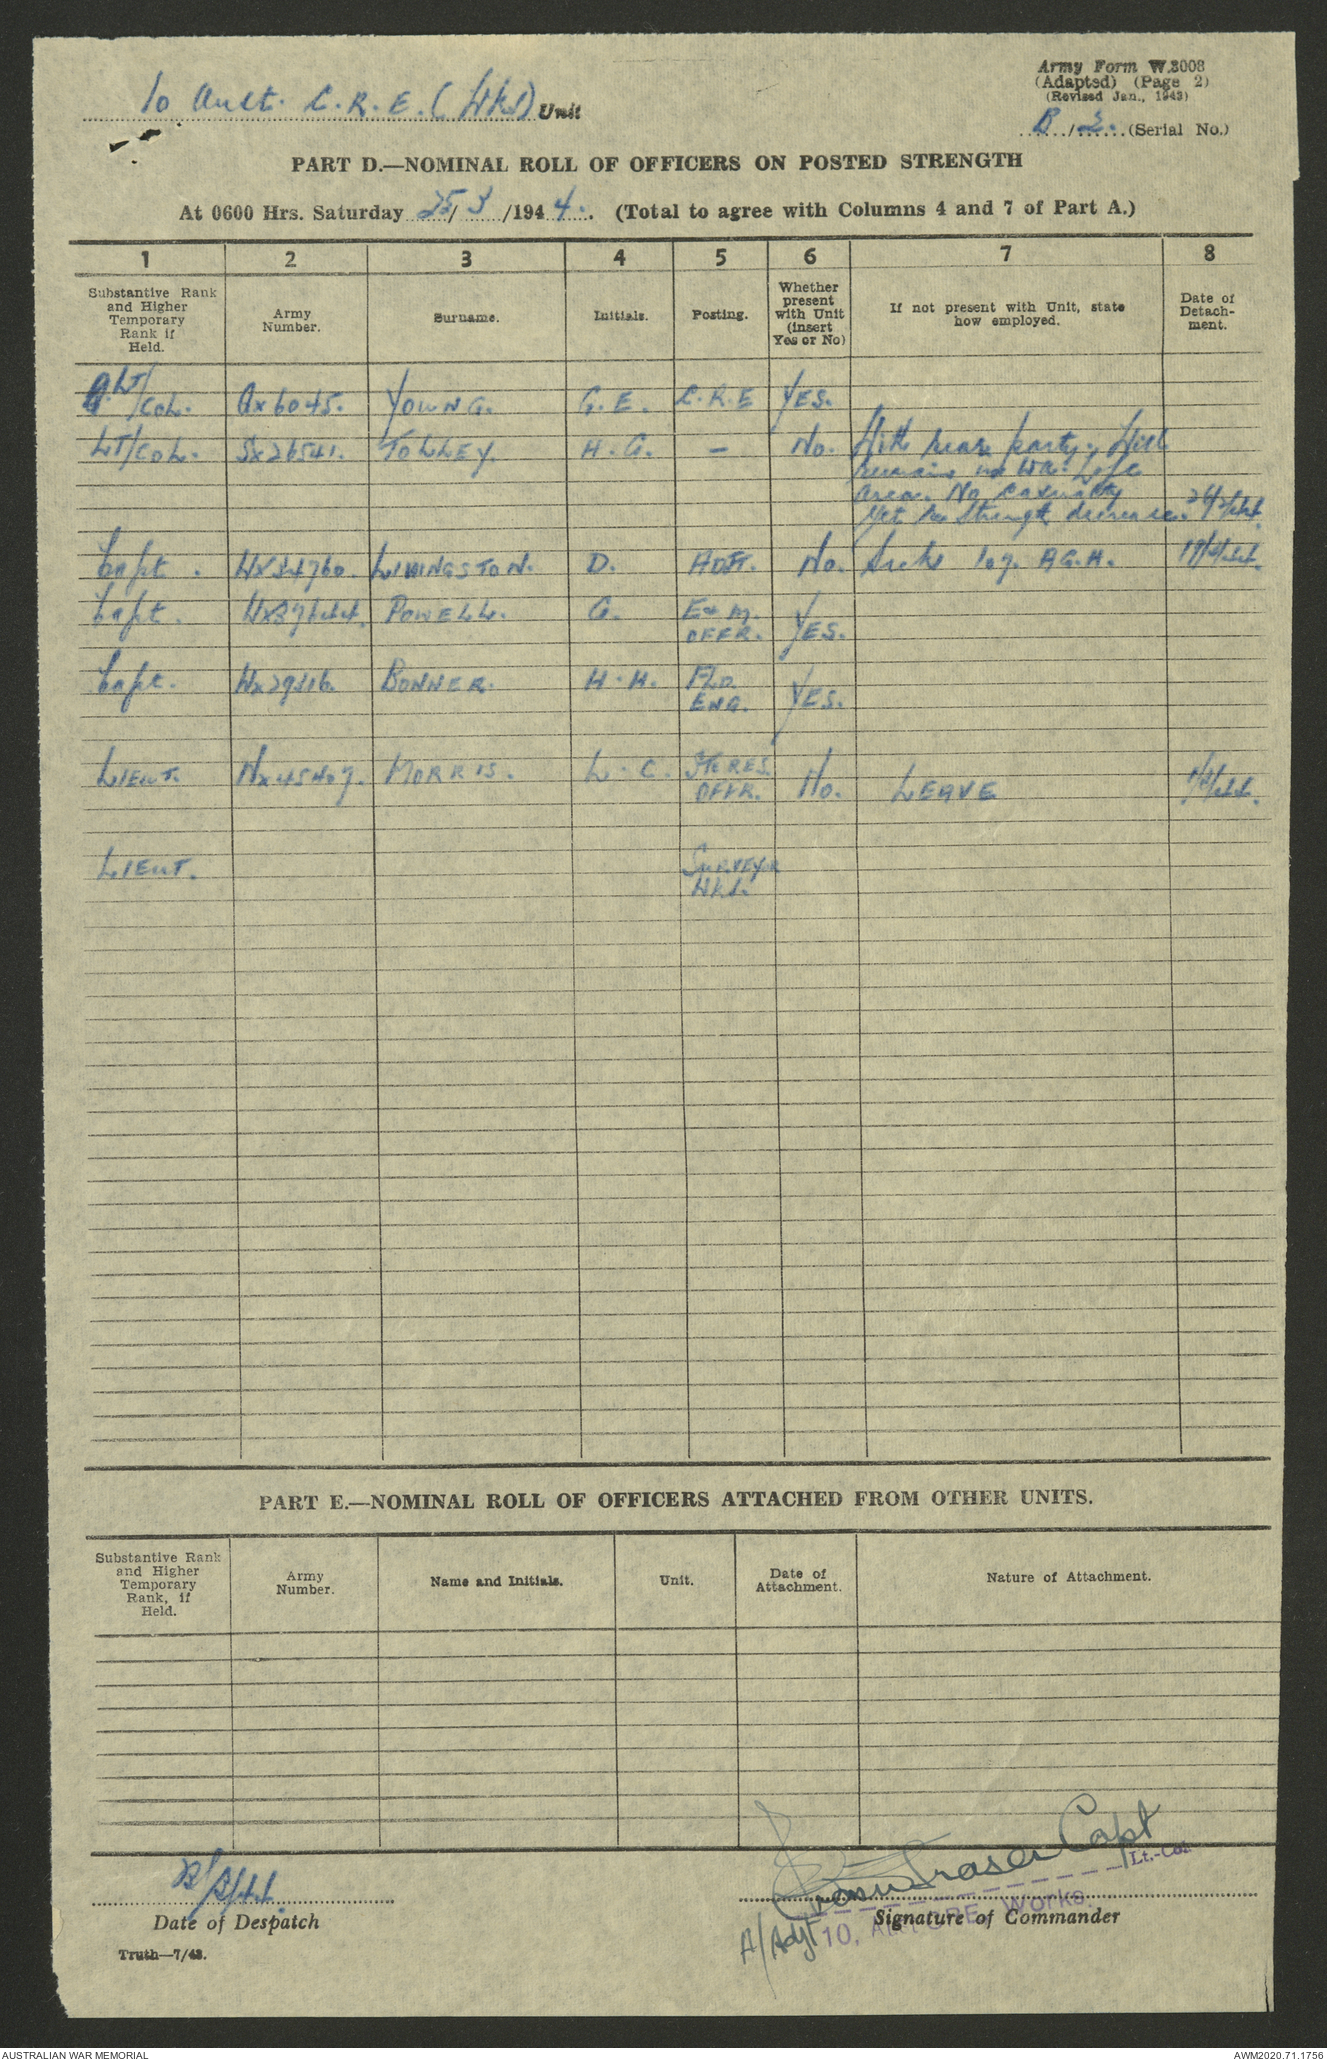 10 Aust. C.R.E. (Wks) Unit
Army Form W.3008
(Adapted) (Page 2)
(Revised Jan., 1943)
B/2. (Serial No.)
PART D.—NOMINAL ROLL OF OFFICERS ON POSTED STRENGTH
At 0600 Hrs. Saturday 25/3/1944. (Total to agree with Columns 4 and 7 of Part A.)
1 2 3 4 5 6 7 8
Substantive Rank and Higher Temporary Rank if Held.
Army Number.
Surname.
Initials.
Posting.
Whether present with Unit (insert Yes or No)
If not present with Unit, state how employed.
Date of Detach-ment.
LT/COL. QX6045. YOUNG. G.E. C.R.E YES.
LT/COL. SX26541. TOLLEY. H.G. — No. With rear party. Still
remains in WA. L of C
area. No casualty
yet for strength decrease.
Capt. LIVINGSTON. D. ADJT. No. Sick 107 A.G.H.
Capt. POWELL. G. E & M. OFFR. YES.
Capt. BONNER. H.H. FLD. ENG. YES.
LIEUT. NX45407. MORRIS. L.C. STORES. OFFR. No. LEAVE
LIEUT. SURVEYOR
Wks.
PART E.—NOMINAL ROLL OF OFFICERS ATTACHED FROM OTHER UNITS.
Substantive Rank and Higher Temporary Rank, if Held.
Army Number.
Name and Initials.
Unit.
Date of Attachment.
Nature of Attachment.
Fraser Capt
Lt.-Col.
Date of Despatch
A/Adjt 10, Aust CRE Works
Signature of Commander
Truth—7/43.
AUSTRALIAN WAR MEMORIAL
AWM2020.71.1756